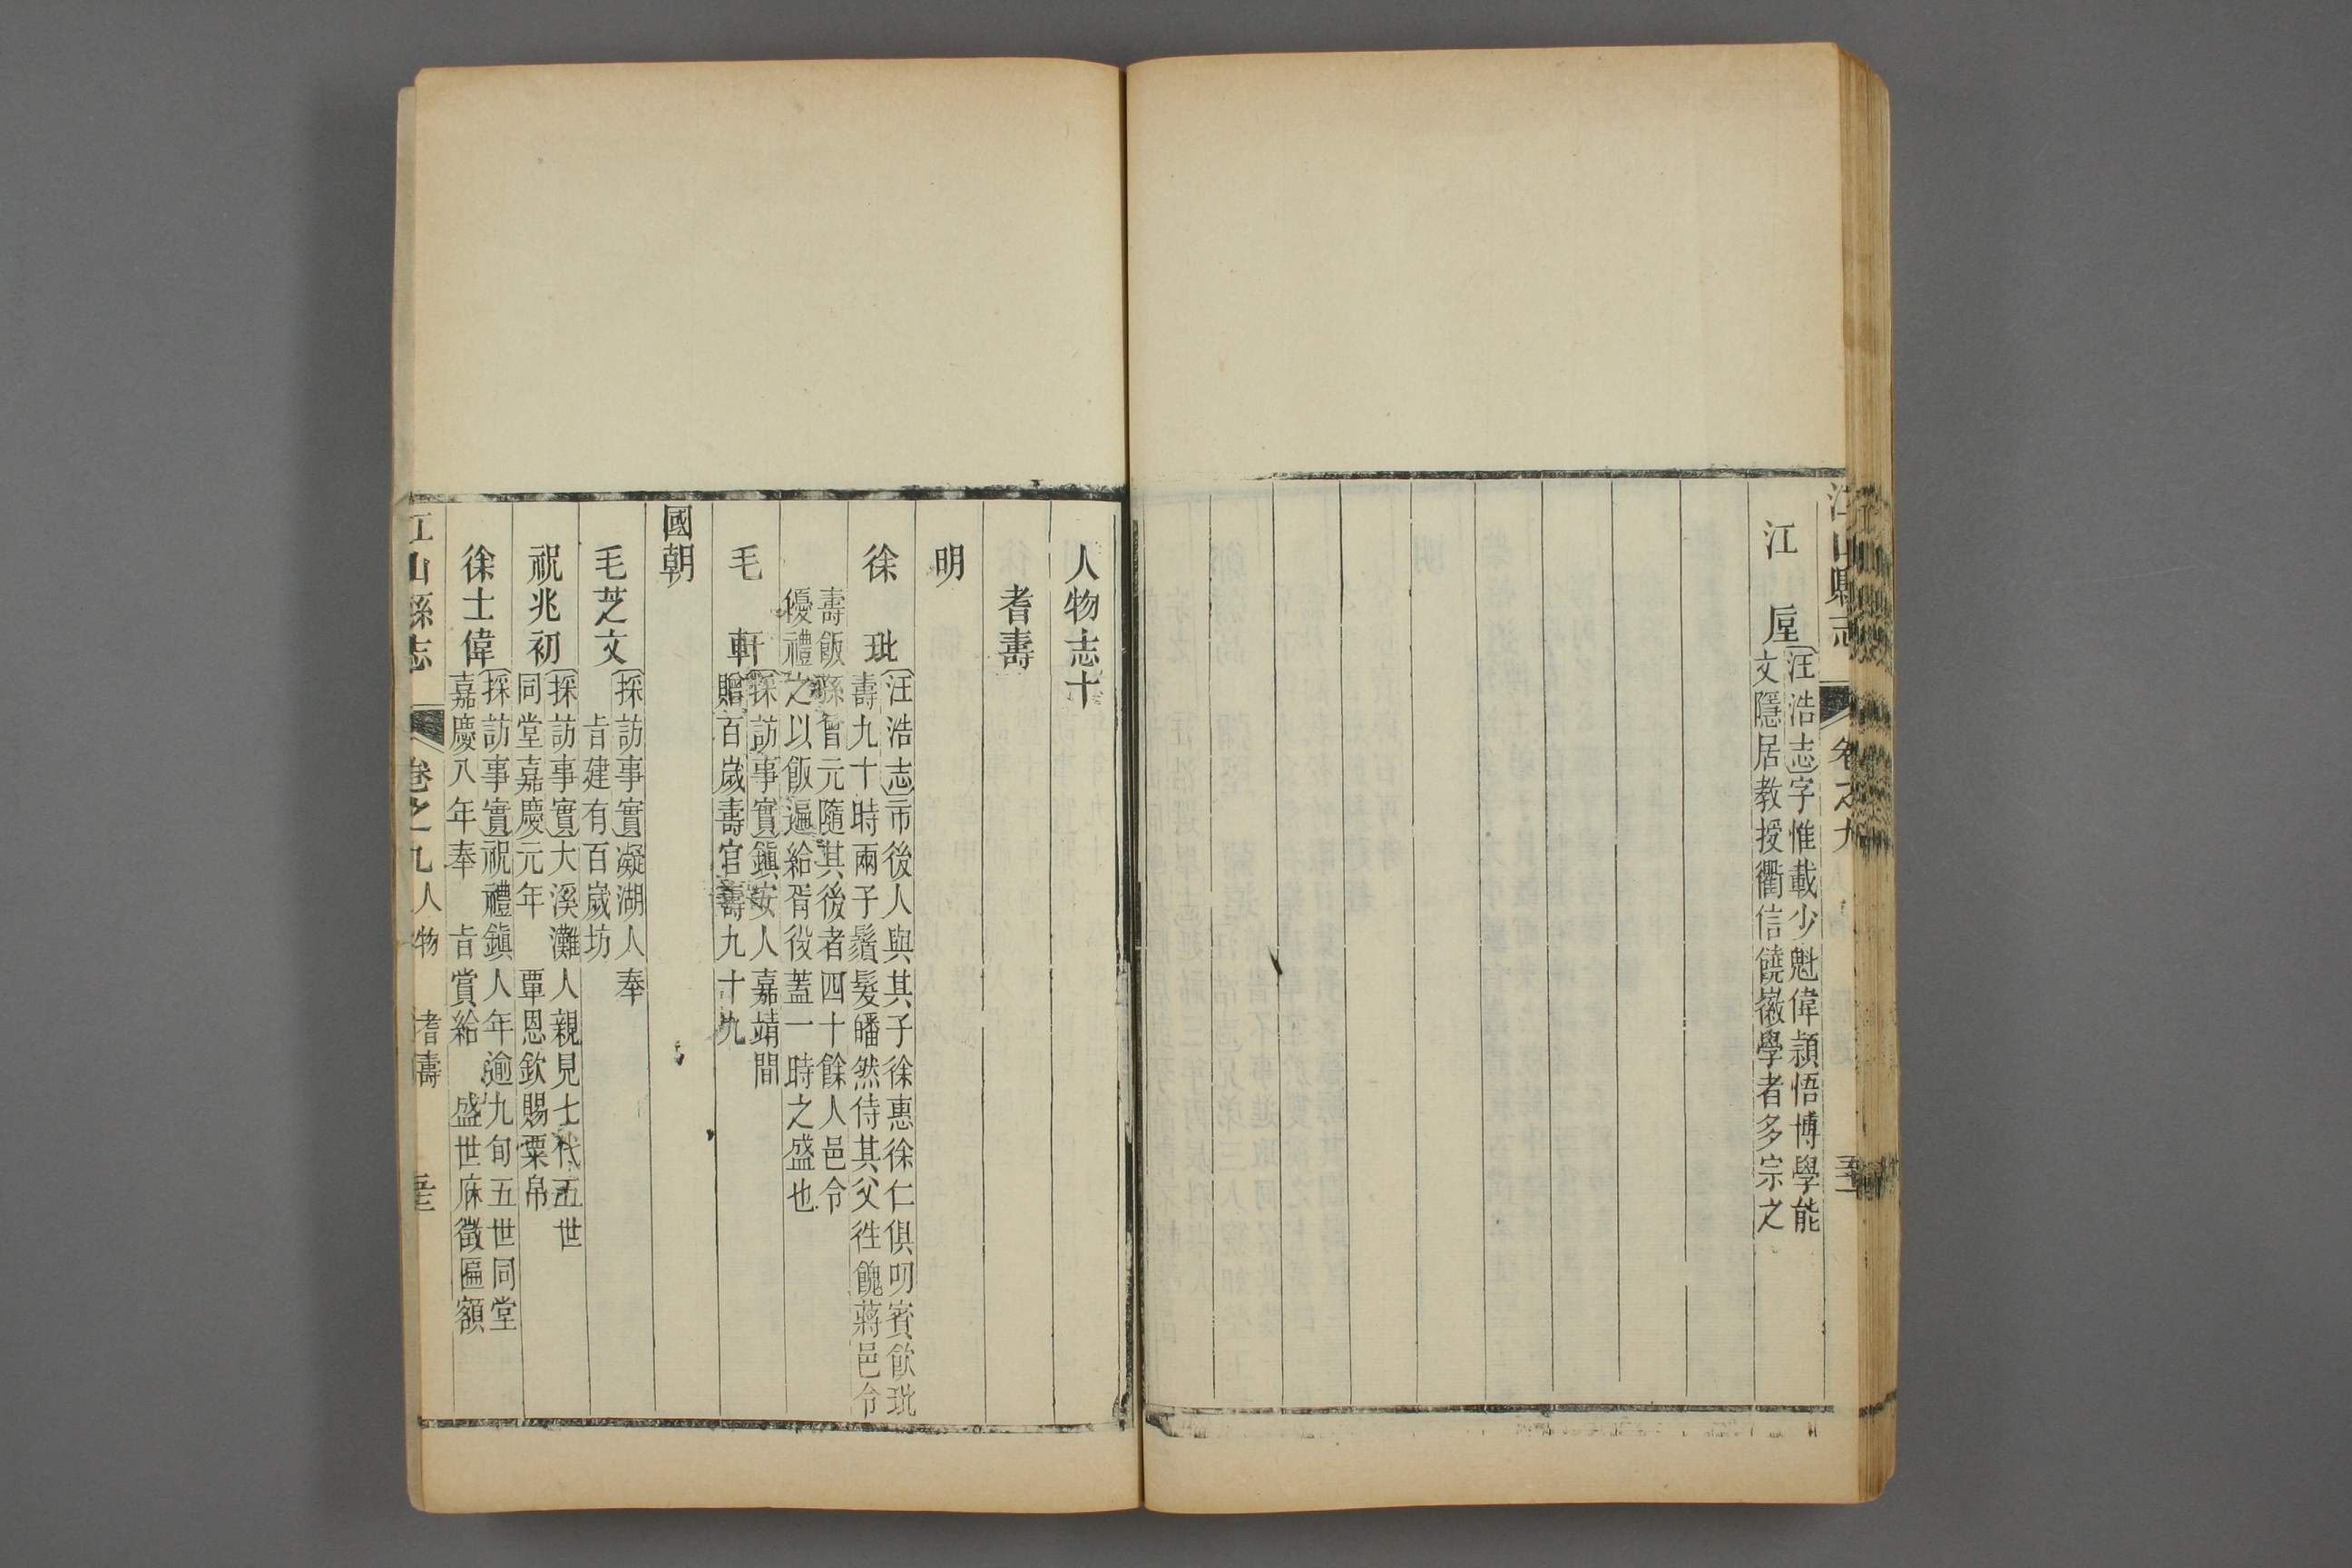 江山縣志 卷之九
江 厔
汪浩志字惟載少魁偉頴悟博學能
文隱居教授衢信饒徽學者多宗之
人物志十
耆壽
明
徐 玭
汪浩志市後人與其子徐惠徐仁俱叨賓飲玭
壽九十時兩子鬚髮皤然侍其父徃餽蔣邑令
壽飯孫曾元隨其後者四十餘人邑令
優禮之以飯遍給胥役蓋一時之盛也
毛 軒
採訪事實鎮安人嘉靖間
贈百歲壽官壽九十九
國朝
毛芝文
採訪事實凝湖人奉
旨建有百歲坊
祝兆初
採訪事實大溪灘人親見七代五世
同堂嘉慶元年 覃恩欽賜粟帛
徐士偉
採訪事實祝禮鎮人年逾九旬五世同堂
嘉慶八年奉 旨賞給 盛世庥徵匾額
江山縣志 卷之九 人物 耆壽